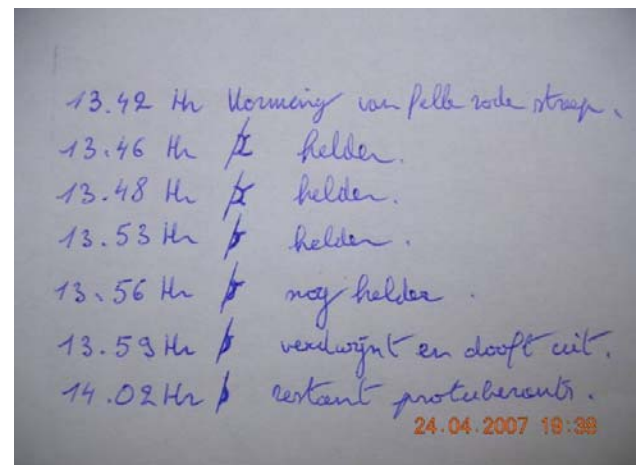 13.42 Hr Vorming van felle rode streep.
13.46 Hr helder.
13.48 Hr helder.
13.53 Hr helder.
13.56 Hr nog helder.
13.59 Hr verdwijnt en dooft uit.
14.02 Hr restant protuberants.
24.04.2007 19:38